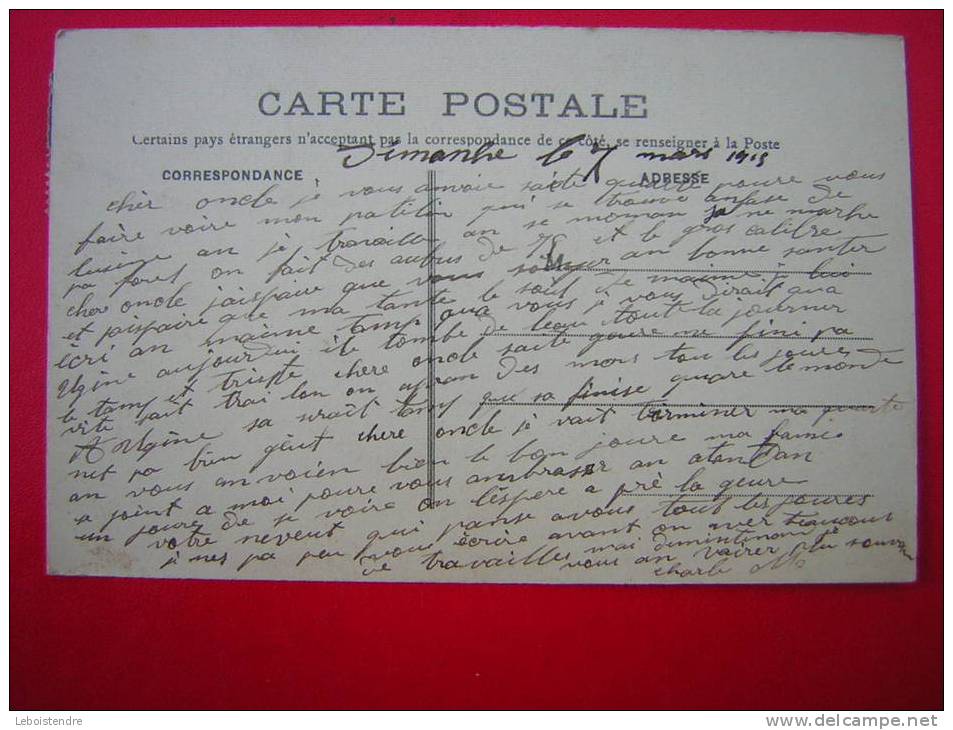 CARTE POSTALE
Certains pays étrangers n'acceptant pas la correspondance de ce côté, se renseigner à la Poste
Dimanhe le 7 mars 1915
CORRESPONDANCE
ADRESSE
cher oncle je vous anvoie saite quarte poure vous
faire voire mon patelin qui se trouve anfase de
lusine an je travaille an se moman sa ne marhe
pa fort on fait des aubus de 75 et le gros calibre
cher oncle jaispaire que vous an bonne santer
et jaispaire que ma tante le soit de maime je lui
écri an maime tamp qua vous je vous dirait qua
Ugine aujourdui ile tombe de leau tout la journer
le tamp et triste chere oncle saite guere ne fini pa
vite sait trai lon on apran des mors tou les joures
A Ugine sa srait tamp que sa finise quare le monde
net pa bien geut chere oncle je vait términer ma quarte
an vous anvoien bien le bon joure ma famie
se joint a moi poure vous ambraser an atandan
un joure de se voire on léspere a prè la geure
votre neveut qui panse avous tout les joures
je nes pa peu vous écrire avant on aver baucout
de travaille mai dimintenan je
vous an vairer plu souvan
charle
Leboistendre
www.delcampe.net